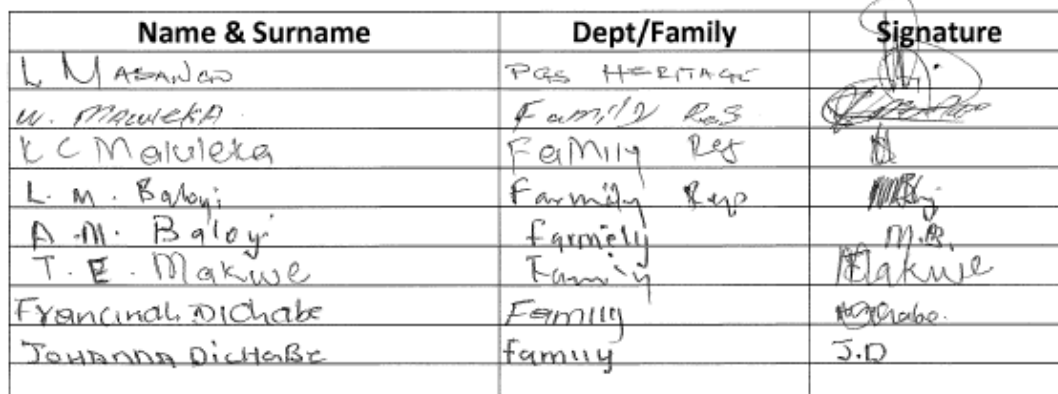 Name & Surname Dept/Family Signature
L MASANGO PGS HERITAGE
W. MAWLEKA. Family Res
K C Maluleka FaMily Rep
L. M. Baloyi Farmily Rep
A .M. Baloyi farmely M.B.
T. E. Makwe Family Makwe
Francinah Dichabe Family
JOHANNA DICHABE family J.D